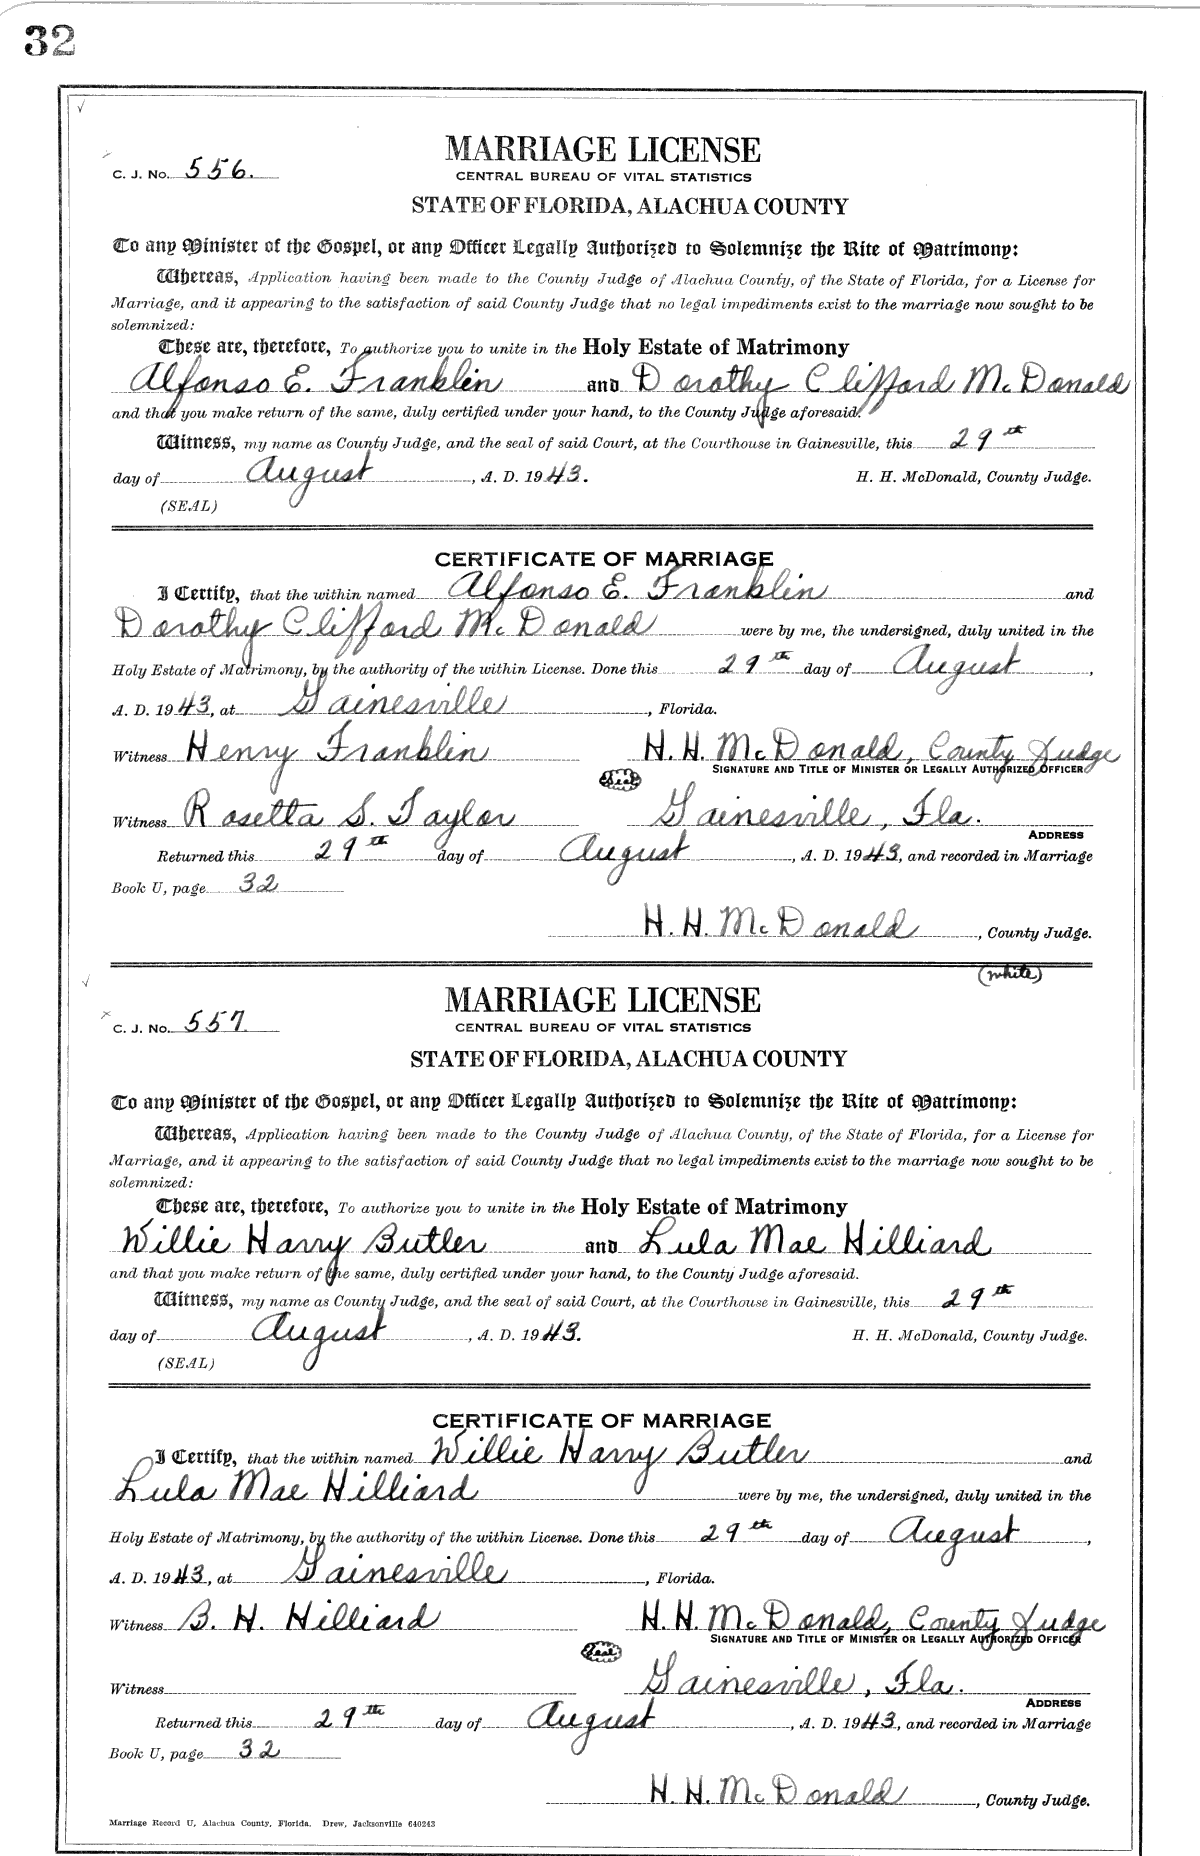 32
MARRIAGE LICENSE
C. J. No. 556.
CENTRAL BUREAU OF VITAL STATISTICS
STATE OF FLORIDA, ALACHUA COUNTY
To any Minister of the Gospel, or any Officer Legally Authorized to Solemnize the Rite of Matrimony:
Whereas, Application having been made to the County Judge of Alachua County, of the State of Florida, for a License for
Marriage, and it appearing to the satisfaction of said County Judge that no legal impediments exist to the marriage now sought to be
solemnized:
These are, therefore, To authorize you to unite in the Holy Estate of Matrimony
Alfonso E. Franklin and Dorothy Clifford McDonald
and that you make return of the same, duly certified under your hand, to the County Judge aforesaid.
Witness, my name as County Judge, and the seal of said Court, at the Courthouse in Gainesville, this 29th
day of August, A. D. 1943. H. H. McDonald, County Judge.
(SEAL)
CERTIFICATE OF MARRIAGE
I Certify, that the within named Alfonso E. Franklin and
Dorothy Clifford McDonald were by me, the undersigned, duly united in the
Holy Estate of Matrimony, by the authority of the within License. Done this 29th day of August,
A. D. 1943, at Gainesville, Florida.
Witness Henry Franklin H. H. McDonald, County Judge
Seal SIGNATURE AND TITLE OF MINISTER OR LEGALLY AUTHORIZED OFFICER
Witness Rosetta S. Taylor Gainesville, Fla.
ADDRESS
Returned this 29th day of August, A. D. 1943, and recorded in Marriage
Book U, page 32
H. H. McDonald, County Judge.
(white)
MARRIAGE LICENSE
C. J. No. 557.
CENTRAL BUREAU OF VITAL STATISTICS
STATE OF FLORIDA, ALACHUA COUNTY
To any Minister of the Gospel, or any Officer Legally Authorized to Solemnize the Rite of Matrimony:
Whereas, Application having been made to the County Judge of Alachua County, of the State of Florida, for a License for
Marriage, and it appearing to the satisfaction of said County Judge that no legal impediments exist to the marriage now sought to be
solemnized:
These are, therefore, To authorize you to unite in the Holy Estate of Matrimony
Willie Harry Butler and Lula Mae Hilliard
and that you make return of the same, duly certified under your hand, to the County Judge aforesaid.
Witness, my name as County Judge, and the seal of said Court, at the Courthouse in Gainesville, this 29th
day of August, A. D. 1943. H. H. McDonald, County Judge.
(SEAL)
CERTIFICATE OF MARRIAGE
I Certify, that the within named Willie Harry Butler and
Lula Mae Hilliard were by me, the undersigned, duly united in the
Holy Estate of Matrimony, by the authority of the within License. Done this 29th day of August,
A. D. 1943, at Gainesville, Florida.
Witness B. H. Hilliard H. H. McDonald, County Judge
Seal SIGNATURE AND TITLE OF MINISTER OR LEGALLY AUTHORIZED OFFICER
Witness Gainesville, Fla.
ADDRESS
Returned this 29th day of August, A. D. 1943, and recorded in Marriage
Book U, page 32
H. H. McDonald, County Judge.
Marriage Record U, Alachua County, Florida. Drew, Jacksonville 640243